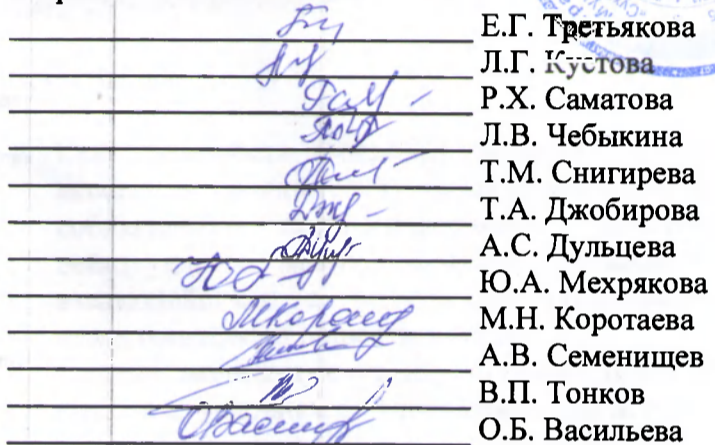 Е.Г. Третьякова
Л.Г. Кустова
Р.Х. Саматова
Л.В. Чебыкина
Т.М. Снигирева
Т.А. Джобирова
А.С. Дульцева
Ю.А. Мехрякова
М.Н. Коротаева
А.В. Семенищев
В.П. Тонков
О.Б. Васильева